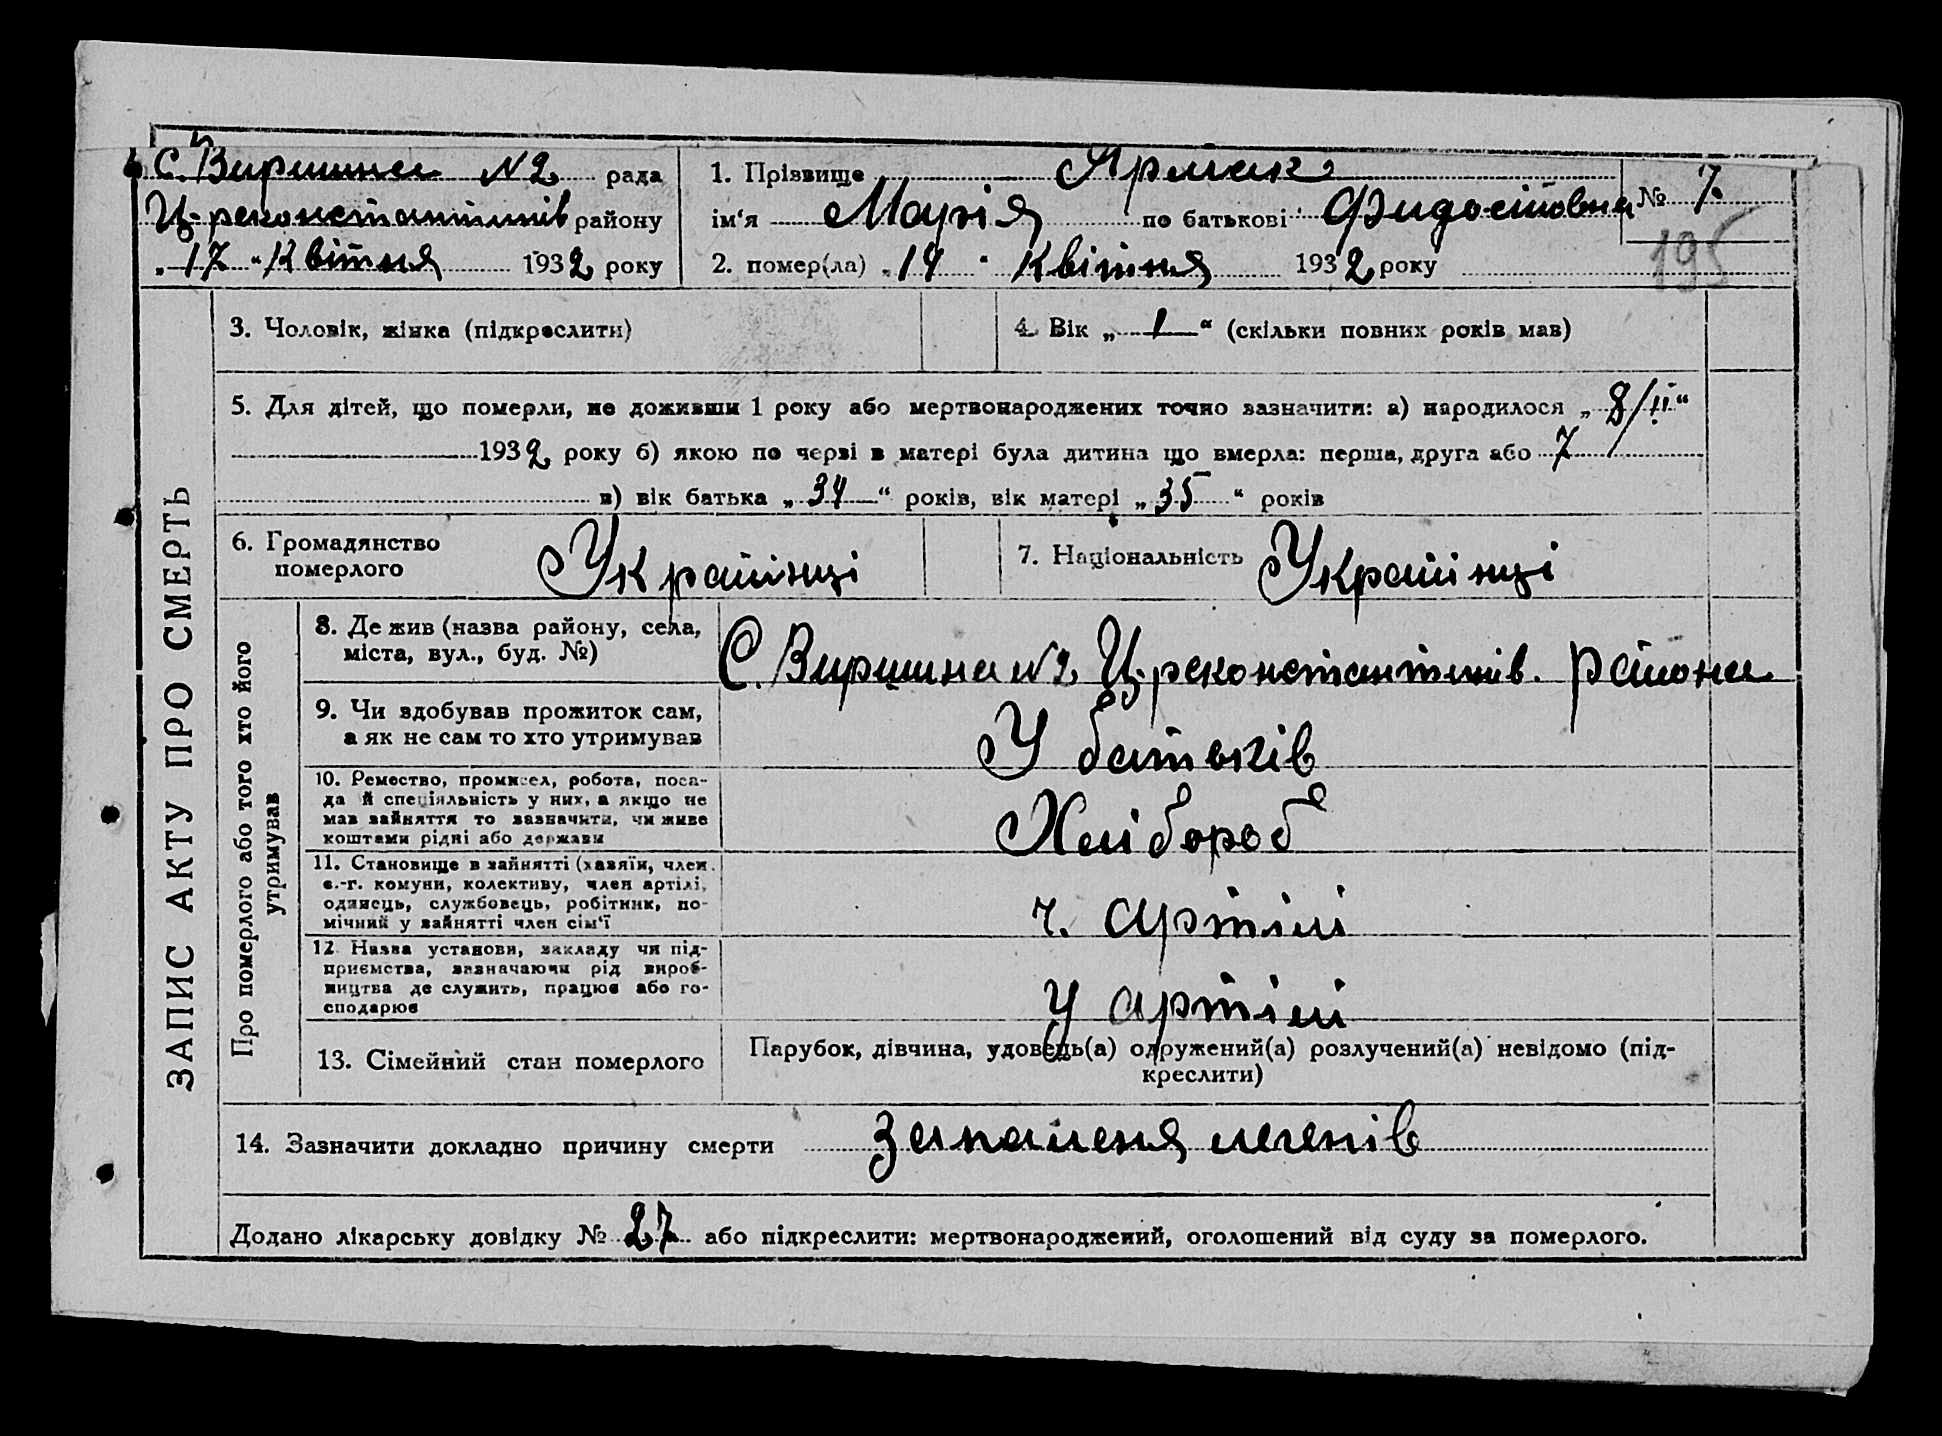 С. Виршина №2 рада
Ц. реконстантинів району
„17“ Квітня 1932 року
1. Прізвище Ярмак
ім‘я Марія по батькові Фидосіївна
№ 7.
195
2. помер(ла) „14“ Квітня 1932 року
ЗАПИС АКТУ ПРО СМЕРТЬ
3. Чоловік, жінка (підкреслити)
4. Вік „1“ (скільки повних років мав)
5. Для дітей, що померли, не доживши 1 року або мертвонароджених точно зазначити: а) народилося „8/II“
1932 року б) якою по черві в матері була дитина що вмерла: перша, друга або 7
в) вік батька „34“ років, вік матері „35“ років
6. Громадянство
померлого
Украінці
7. Національність Украінці
Про померлого або того хто його
утримував
8. Де жив (назва району, села,
міста, вул., буд. №)
С. Виршина №2 Ц. реконстантинів. района
9. Чи здобував прожиток сам,
а як не сам то хто утримував
У батьків
10. Ремество, промисел, робота, поса-
да й спеціяльність у них, а якщо не
мав вайняття то зазначити, чи живе
коштами рідні або держави
Хлібороб
11. Становище в зайнятті (хазяїн, член
с.-г. комуни, колективу, член артілі,
одинець, службовець, робітник, по-
мічний у вайнятті член сім‘ї
ч. артілі
12. Назва установи, закладу чи під-
приємства, зазначаючи рід вироб-
ництва де служить, працює або го-
сподарює
У артілі
13. Сімейний стан померлого
Парубок, дівчина, удовець(а) одружений(а) розлучений(а) невідомо (під-
креслити)
14. Зазначити докладно причину смерти Запаленя легенів
Додано лікарську довідку № 27 або підкреслити: мертвонароджений, оголошений від суду за померлого.